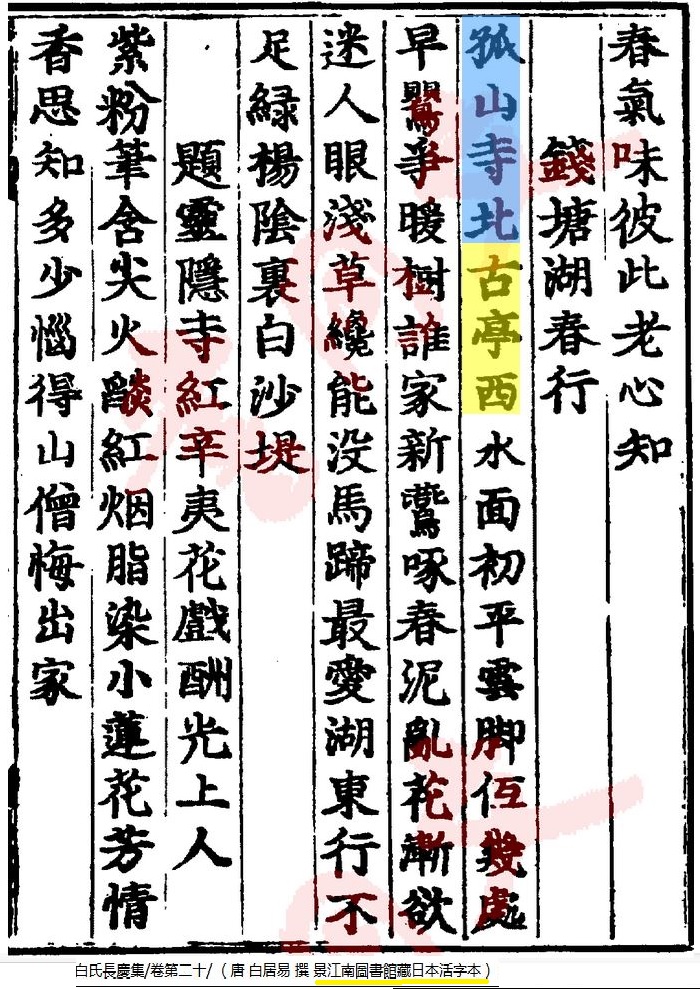 春氣味彼此老心知
錢塘湖春行
孤山寺北古亭西水面初平雲脚伍幾處
早鸎爭暖樹誰家新鷰啄春泥亂花漸欲
迷人眼淺草纔能没馬蹄最愛湖東行不
足緑楊陰裏白沙堤
題靈隱寺紅辛夷花戲酬光上人
紫粉筆含尖火燄紅烟脂染小蓮花芳情
香思知多少惱得山僧悔出家
白氏長慶集/卷第二十/（唐 白居易 撰 景江南圖書館藏日本活字本）